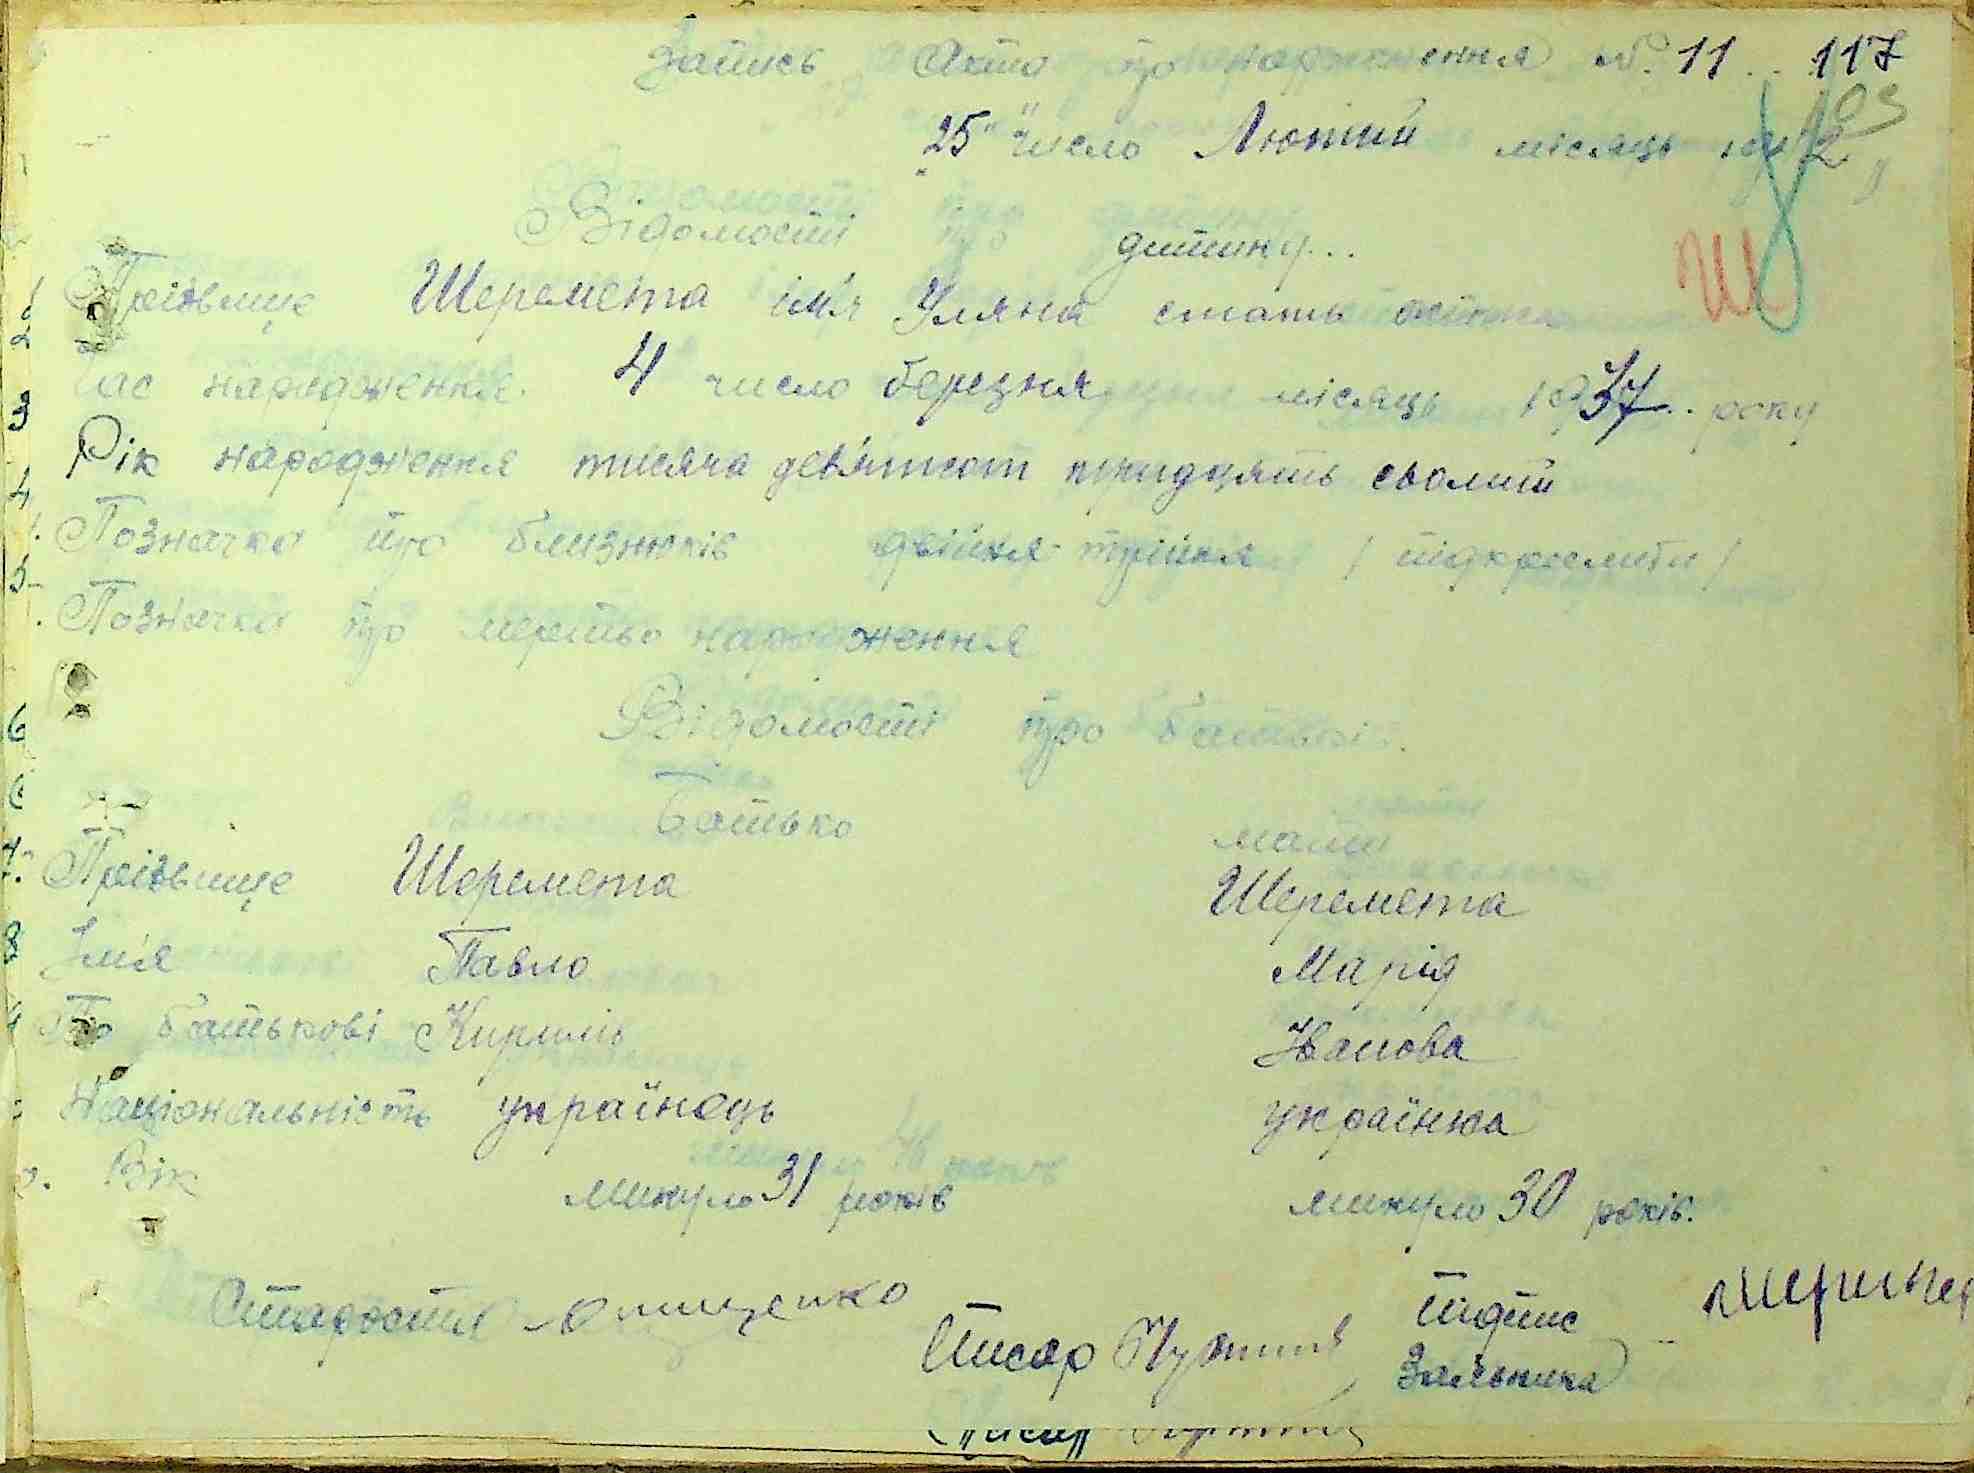 Запись Акта про народження № 11 117
103
"25" число Лютий місяць 1942
Відомості про дитину..
Ш
Прізвище Шеремета ім'я Уляна стать жіноча
Час народження. 4 число березня місяць 1937.. року
Рік народження тисяча дев'ятсот тридцять сьомий
Позначка про близнюків двійня-трійня / підкреслити /
Позначка про мертво народження
Відомості про батьків.
Батько мати
Прізвище Шеремета Шеремета
Ім'я Павло Марія
По батькові Кирилів Іванова
Національність українець українка
Вік минуло 31 років минуло 30 років.
Староста Онищенко
Писар Підпис
Заявника
Писар